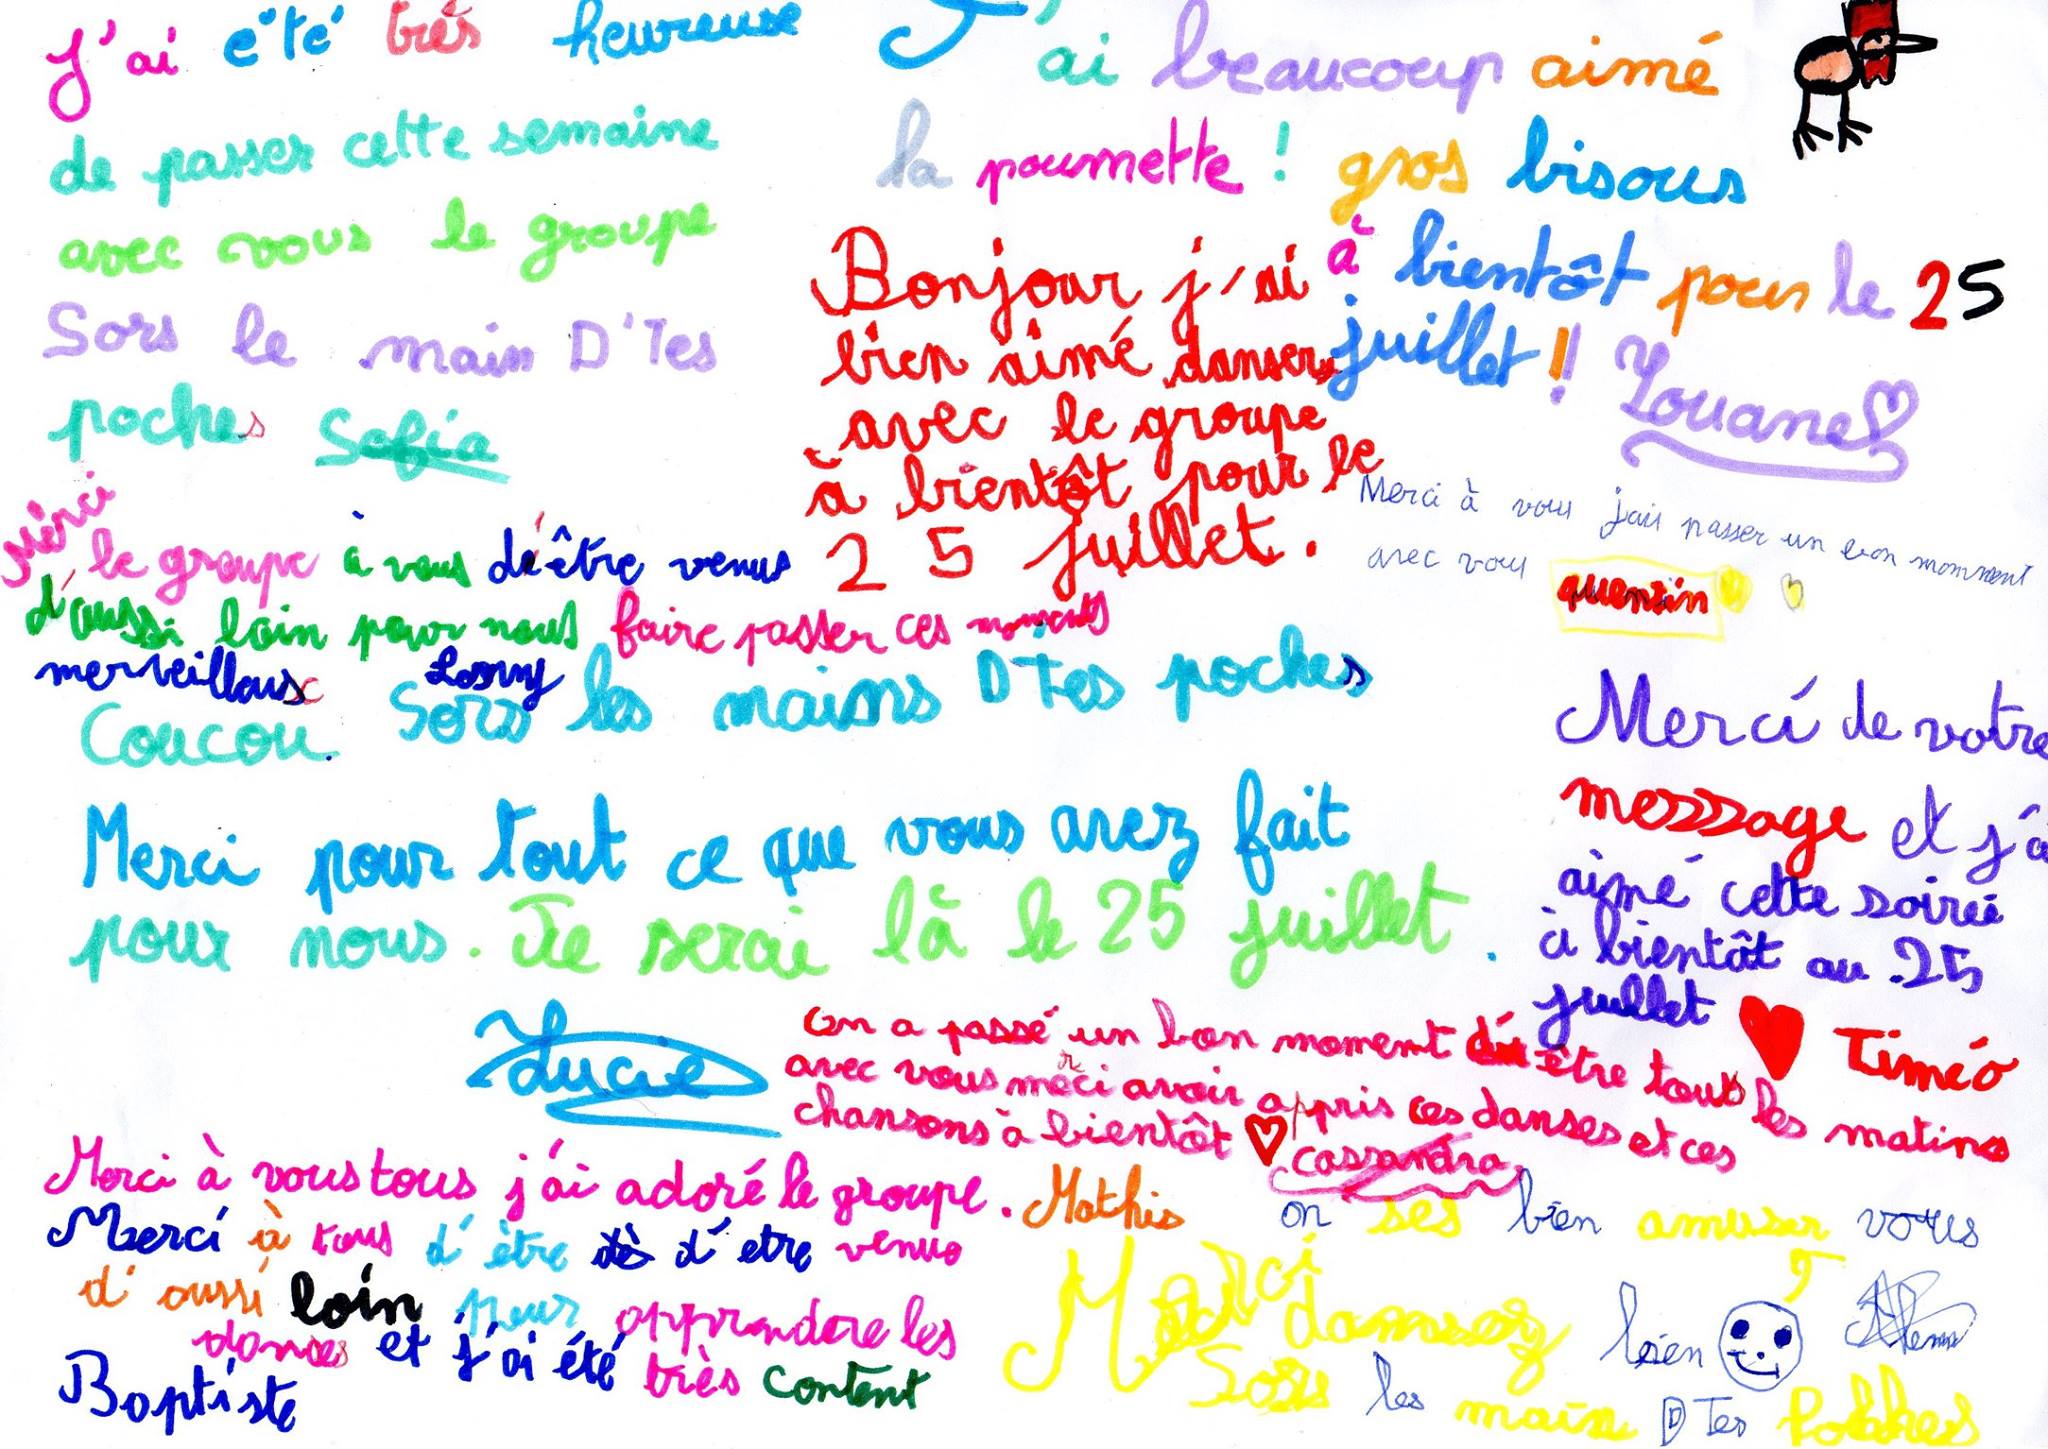 J'ai été très heureuse
de passer cette semaine
avec vous le groupe
Sors le main D'Tes
poches Sofia
J'ai beaucoup aimé
la poumette ! gros bisous
à bientôt pour le 25
juillet !! Louane
Bonjour j'ai
bien aimé danser
avec le groupe
à bientôt pour le
25 juillet.
Merci à vous j'ais passer un bon momment
avec vous quentin
Merci
le groupe à vous d'être venus
d'aussi loin pour nous faire passer ces moments
merveillous
Coucou. Sors les mains D Tes poches
Merci pour tout ce que vous avez fait
pour nous. Je serai là le 25 juillet.
Lucie
Merci de votre
message et j'ai
aimé cette soirée
à bientôt au 25
juillet Timéo
on a passé un bon moment d'être tout les matins
avec vous merci avoir appris ces danses et ces
chansons à bientôt Cassandra
Merci à vous tous j'ai adoré le groupe. Mathis
Merci à tous d'être dè d'etre venus
d'aussi loin pour apprendre les
danses et j'ai été très content
Baptiste
on ses bien amuser vous
Merci dansez bien
Sors les main D Tes Pohhes